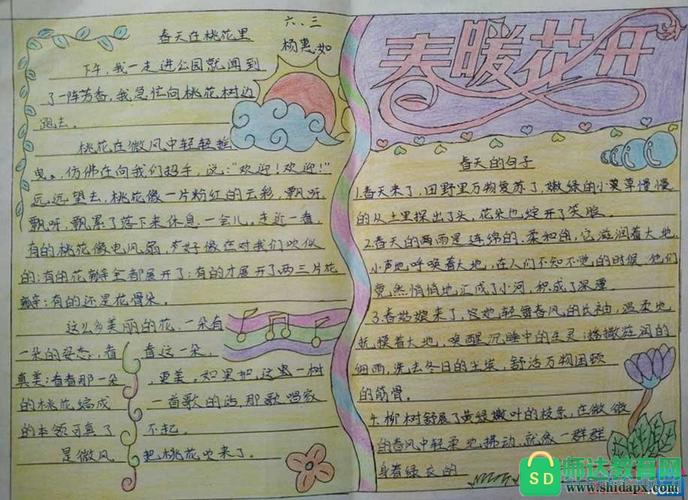 春天在桃花里
六、三
杨惠如
下午,我一走进公园就闻到
了一阵芳香,我急忙向桃花树边
跑去。
桃花在微风中轻轻摇
曳。仿佛在向我们招手,说:“欢迎!欢迎!”
远远望去,桃花像一片粉红的云彩,飘呀
飘呀,飘累了落下来休息一会儿,走近一看
有的桃花像电风扇,好像在对我们吹似
的;有的花瓣全都展开了;有的才展开了两三片花
瓣;有的还是花骨朵。
这么多美丽的花,一朵有
一朵的姿态,看看这一朵,
真美;看看那一朵,更美。如果把这一树
的桃花编成一首歌的话,那歌唱家
的本领可真了不起。
是微风把桃花吹来了。
春暖花开
春天的句子
1.春天来了,田野里万物复苏了,嫩绿的小草草慢慢
的从土里探出了头,花朵也绽开了笑脸。
2.春天的雨是连绵的、柔和的,它滋润着大地,
小声地呼唤着大地,在人们不知不觉的时候,他们
竟然悄悄地汇成了小河,积成了深潭
3.春姑娘来了,她轻舞春风的长袖,温柔地
抚摸着大地,唤醒沉睡中的生灵;播撒滋润的
细雨,洗去冬日的尘埃,舒活万物困顿
的筋骨。
4.柳树舒展了黄绿嫩叶的枝条,在微微
的春风中轻柔地拂动,就像一群群
身着绿衣的
SD
师达教育网
www.shidapx.com